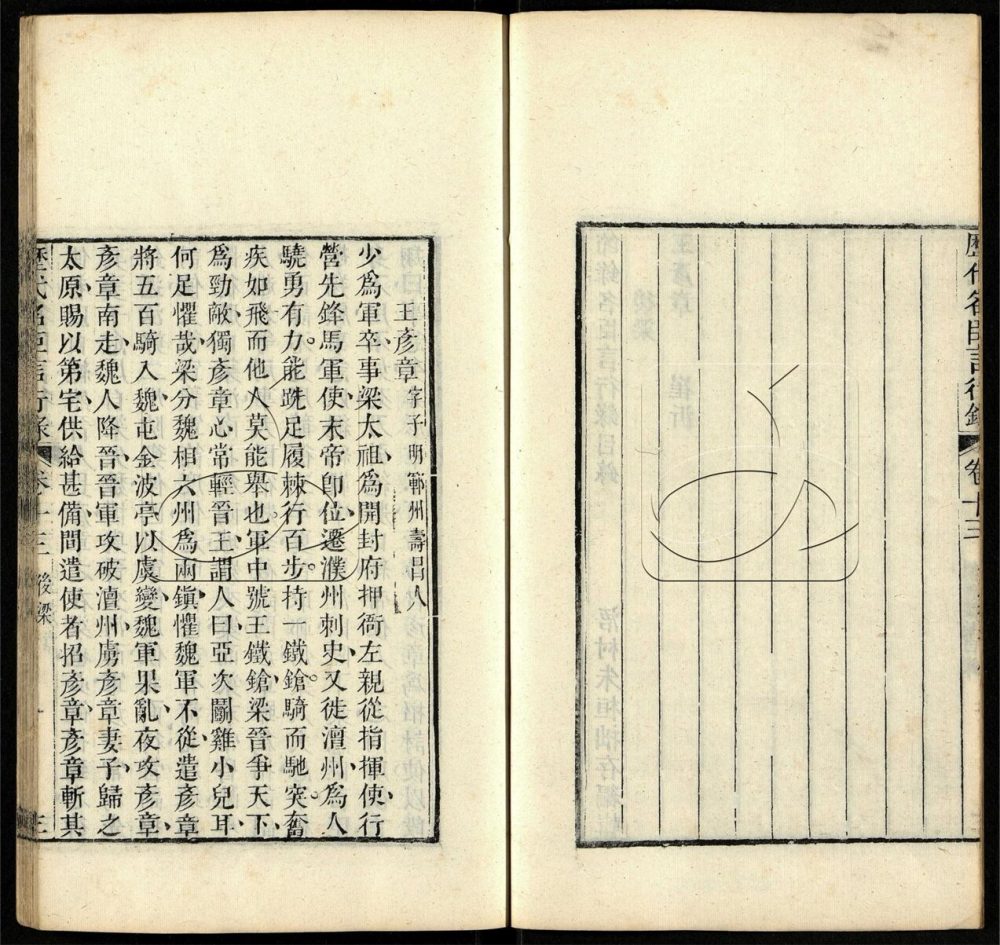 歷代名臣言行錄 卷十三
王彥章字子明鄆州壽昌人
少爲軍卒事梁太祖爲開封府押衙左親從指揮使行
營先鋒馬軍使末帝卽位遷濮州刺史又徙澶州爲人
驍勇有力能跣足履棘行百步持一鐵鎗騎而馳突奮
疾如飛而他人莫能舉也軍中號王鐵鎗梁晉爭天下
爲勁敵獨彥章心常輕晉王謂人曰亞次鬬雞小兒耳
何足懼哉梁分魏相六州爲兩鎭懼魏軍不從遣彥章
將五百騎入魏屯金波亭以虞變魏軍果亂夜攻彥章
彥章南走魏人降晉晉軍攻破澶州虜彥章妻子歸之
太原賜以第宅供給甚備間遣使者招彥章彥章斬其
歷代名臣言行錄 卷十三 後梁 三